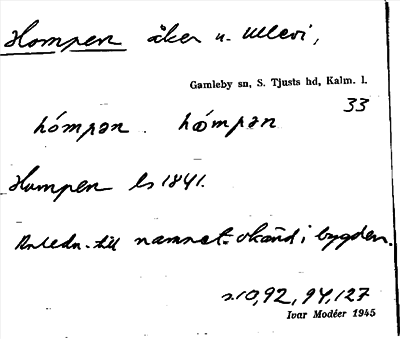 Hompen åker u. Ullevi,
Gamleby sn, S. Tjusts hd, Kalm. l.
33
hómpən . hǿmpən
Humpen ls 1841.
Anledn. till namnet okänd i bygden.
s. 10, 92, 94, 127
Ivar Modéer 1945